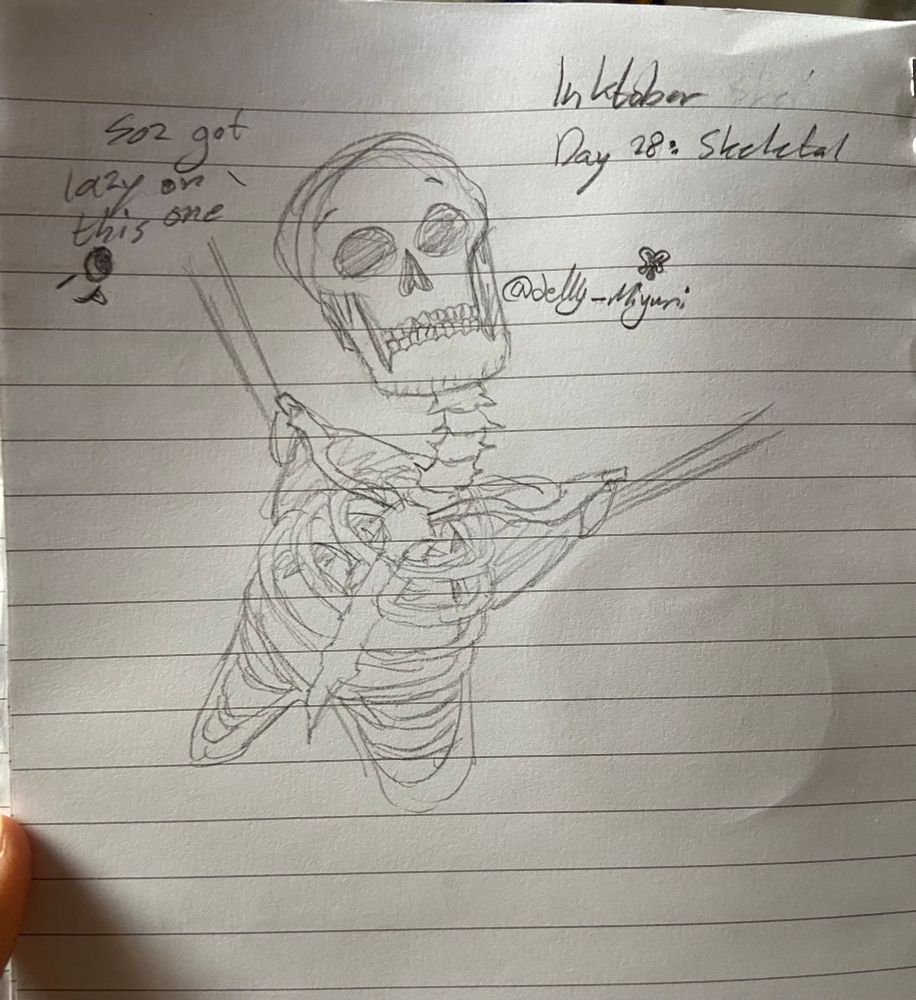 Inktober
Day 28: Skeletal
Soz got
lazy on
this one
@delly_Miyuri